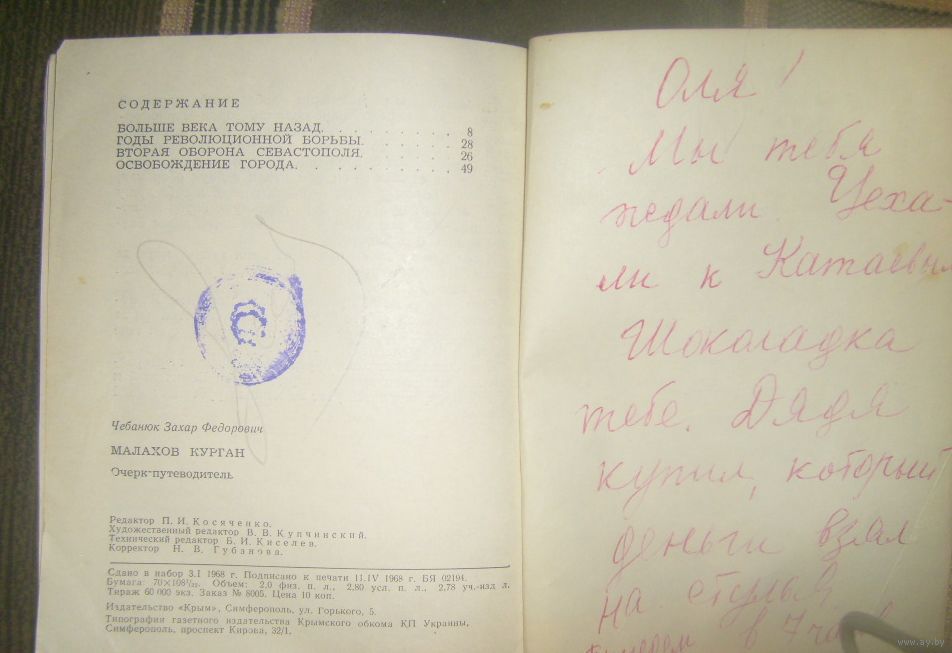 СОДЕРЖАНИЕ
БОЛЬШЕ ВЕКА ТОМУ НАЗАД. . . . . . . . . . 8
ГОДЫ РЕВОЛЮЦИОННОЙ БОРЬБЫ. . . . . . . 28
ВТОРАЯ ОБОРОНА СЕВАСТОПОЛЯ. . . . . . . 26
ОСВОБОЖДЕНИЕ ГОРОДА. . . . . . . . . . . 49
Чебанюк Захар Федорович
МАЛАХОВ КУРГАН
Очерк-путеводитель
Редактор П. И. Косяченко.
Художественный редактор В. В. Купчинский.
Технический редактор Б. И. Киселев.
Корректор Н. В. Губанова.
Сдано в набор 3.I 1968 г. Подписано к печати 11.IV 1968 г. БЯ 02194.
Бумага: 70×108¹/₃₂. Объем: 2,0 физ. п. л., 2,80 усл. п. л., 2,78 уч.-изд л.
Тираж 60 000 экз. Заказ № 8005. Цена 10 коп.
Издательство «Крым», Симферополь, ул. Горького, 5.
Типография газетного издательства Крымского обкома КП Украины,
Симферополь, проспект Кирова, 32/1.
Оля!
Мы тебя
ждали. Уеха-
ли к Катаевым
Шоколадка
тебе. Дядя
купил, который
деньги взял
на
в 7
www.ay.by